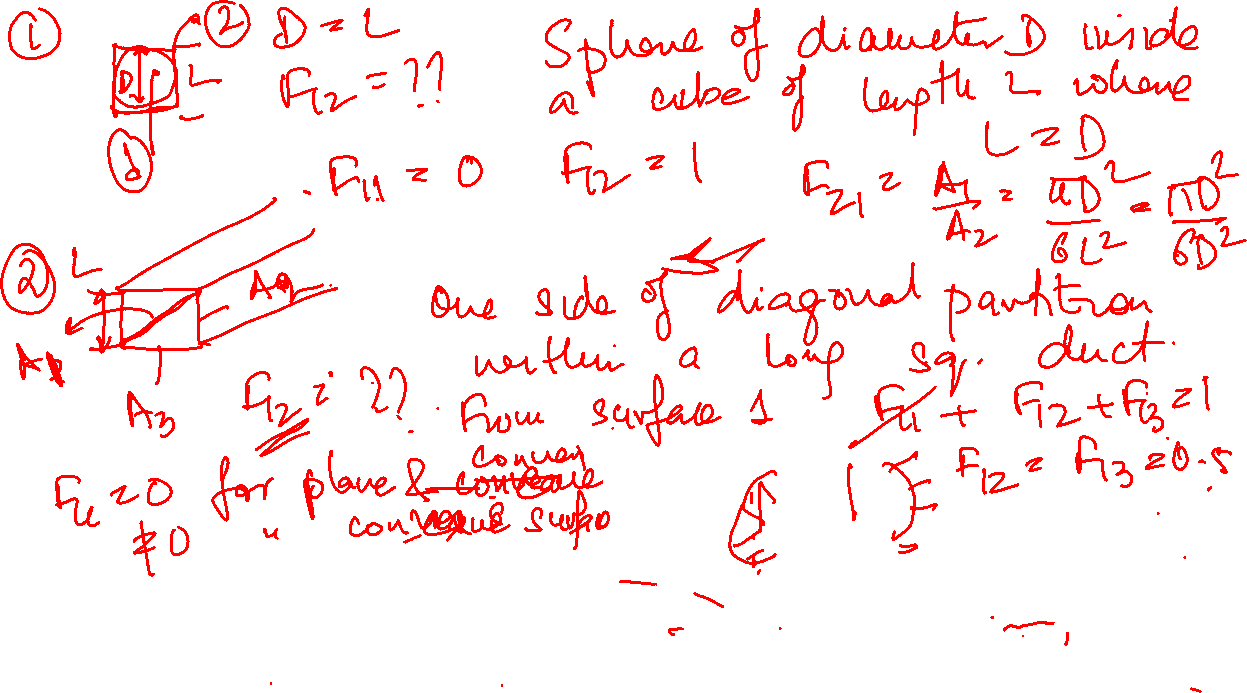 ① ② D = L Sphere of diameter D inside
D L F12 = ?? a cube of length L where
① L = D
F11 = 0 F12 = 1 F21 = A1/A2 = πD²/6L² = πD²/6D²
② L A2 One side of diagonal partition
A1 within a long sq. duct.
A3 F12 = ?? From surface 1 F11 + F12 + F13 = 1
F12 = F13 = 0.5
F11 = 0 for plane & convex
≠ 0 "